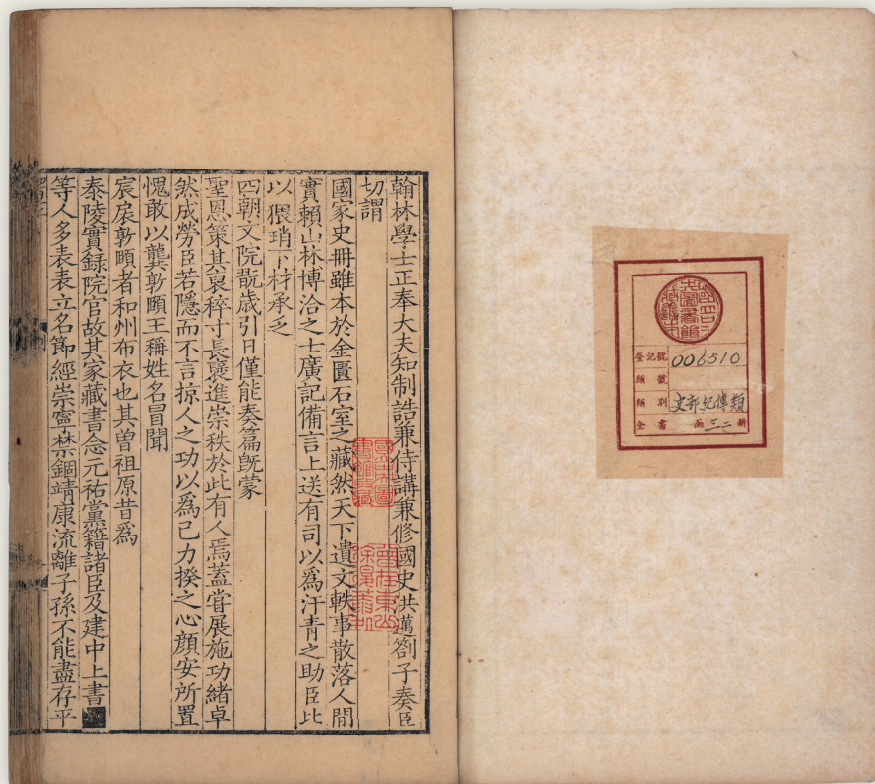 登記號 006510
類號
類別 史部紀傳類
全書 函三二冊
翰林學士正奉大夫知制誥兼侍講兼修國史洪邁劄子奏臣
切謂
國家史冊雖本於金匱石室之藏然天下遺文軼事散落人間
實賴山林博洽之士廣記備言上送有司以爲汗青之助臣比
以猥瑣下材承乏
四朝文院翫歲引日僅能奏篇旣蒙
聖恩策其裒稡寸長襃進崇秩於此有人焉蓋嘗展施功緒卓
然成勞臣若隱而不言掠人之功以爲己力揆之心顏安所置
愧敢以龔敦頤王稱姓名冒聞
宸扆敦頤者和州布衣也其曾祖原昔爲
泰陵實錄院官故其家藏書念元祐黨籍諸臣及建中上書
等人多表表立名節經崇寧禁錮靖康流離子孫不能盡存平